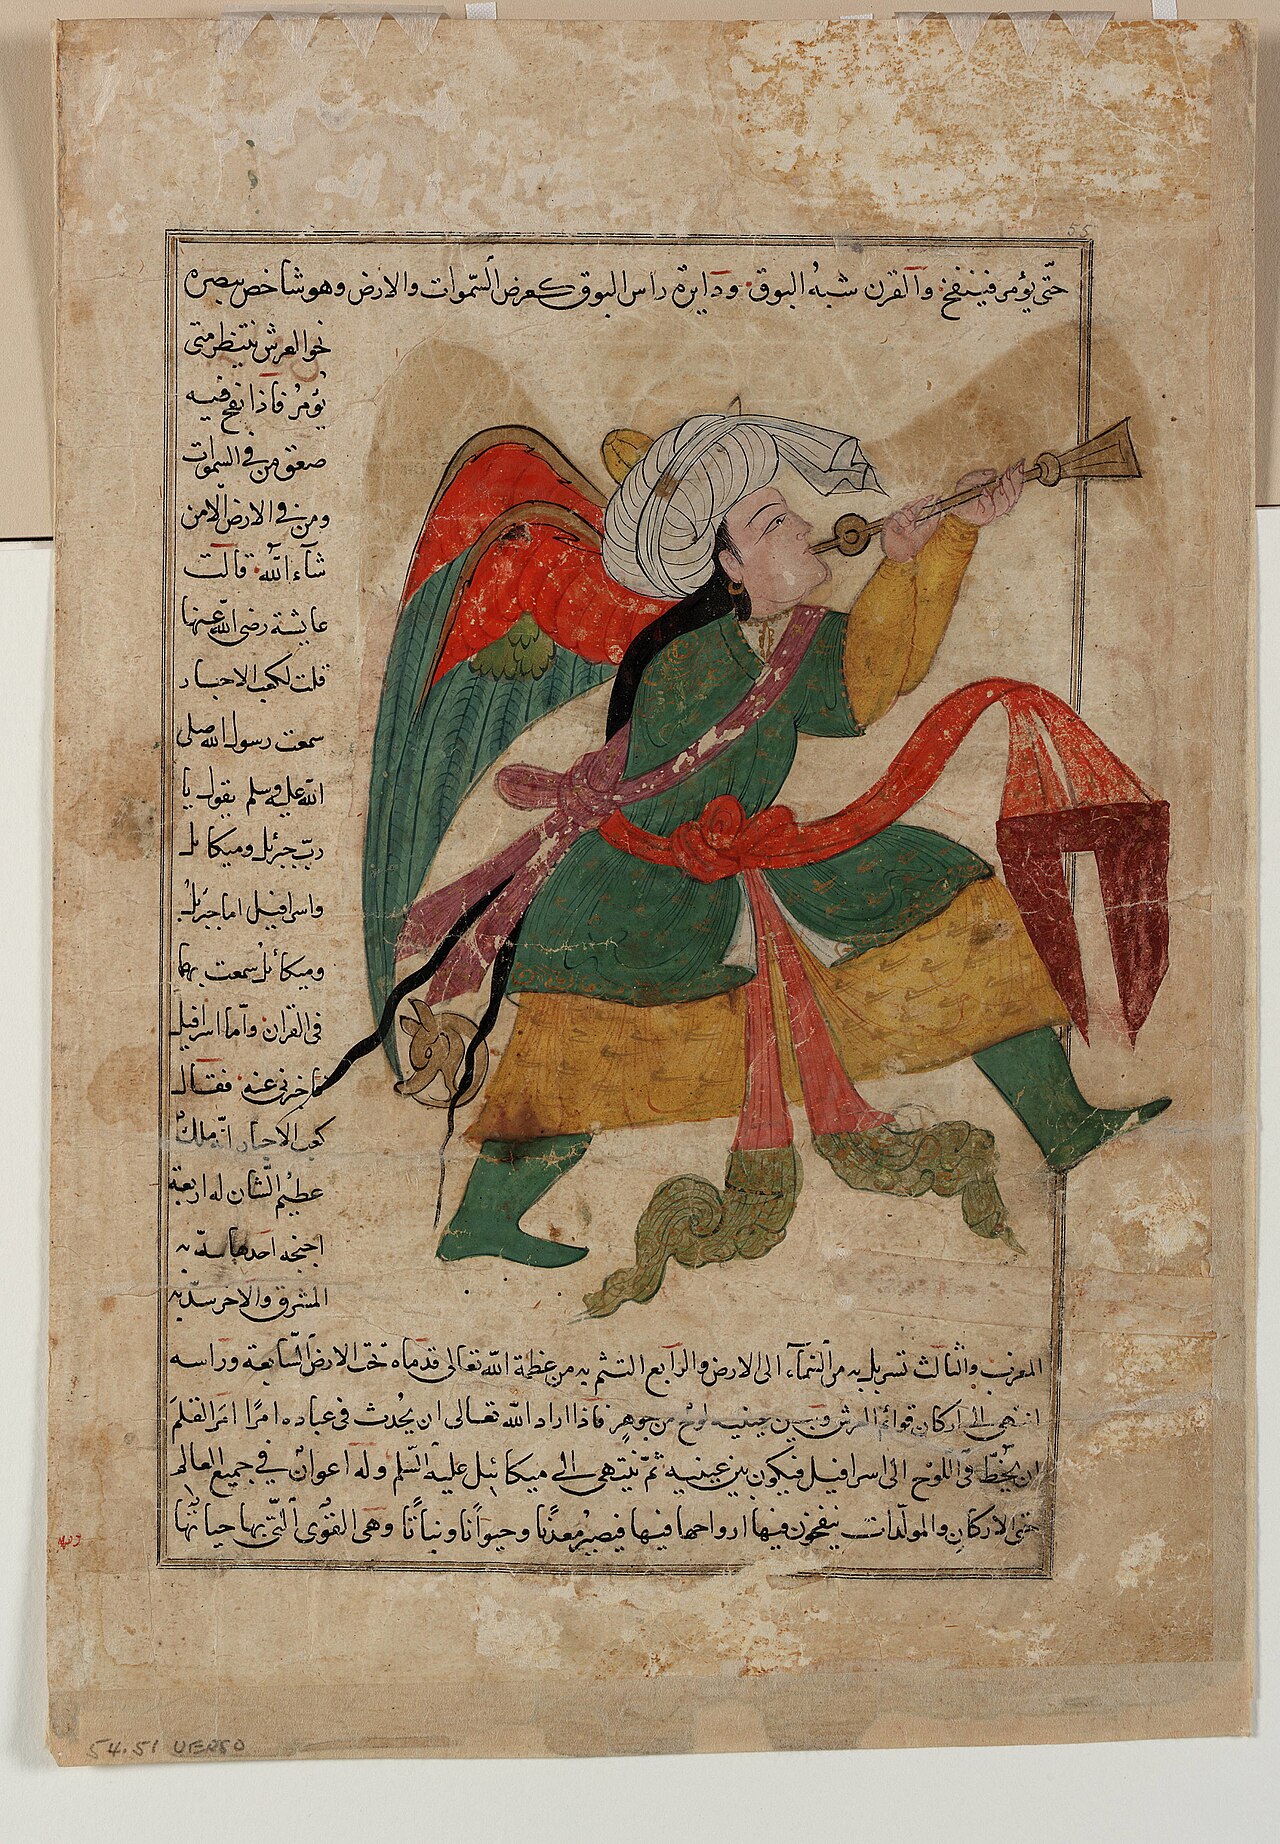 حتّى يؤمر فينفخ والقرن شبهُ البوق ودايرة راس البوق كعرض السّموات والارض وهو شاخص ببصره
نحو العرش ينتظر متى
يؤمرُ فاذا نفخ فيه
صعق من في السموات
ومن في الارض الّا من
شآء اللّه قالت
عايشة رضى اللّه عنها
قلت لكعب الاحبار
سمعت رسول اللّه صلى
اللّه عليه وسلم يقول يا
ربّ جبرئل وميكائل
واسرافيل اما جبرئل
وميكائل سمعت بهما
فى القران وامّا اسرافيل
فاخبرنى عنه فقال
كعب الاحبار انّه ملكٌ
عظيم الشّان له اربعة
اجنحة احدها سدّ به
المشرق والاخر سدّ به
المغرب والثالث تسربل به من السّمآء الى الارض والرّابع التثم به من عظمة اللّه تعالى قدماه تحت الارض السّابعة وراسه
انتهى الى اركان قوائم العرش وبين عينيه لوح من جوهر فاذا اراد اللّه تعالى ان يحُدث فى عباده امرًا امَرَ القلمَ
ان يخُطّ فى اللّوح الى اسرافيل فيكون بين عينيه ثمّ ينتهى الى ميكائيل عليه السّلم وله اعوانٌ فى جميع العالم
حتى الاركانِ والمولّدات ينفخون فيها ارواحها فيها فيصيرُ معدنًا وحيوانًا ونباتًا وهى القوى الّتى بها حياتها
55
54.51 VERSO